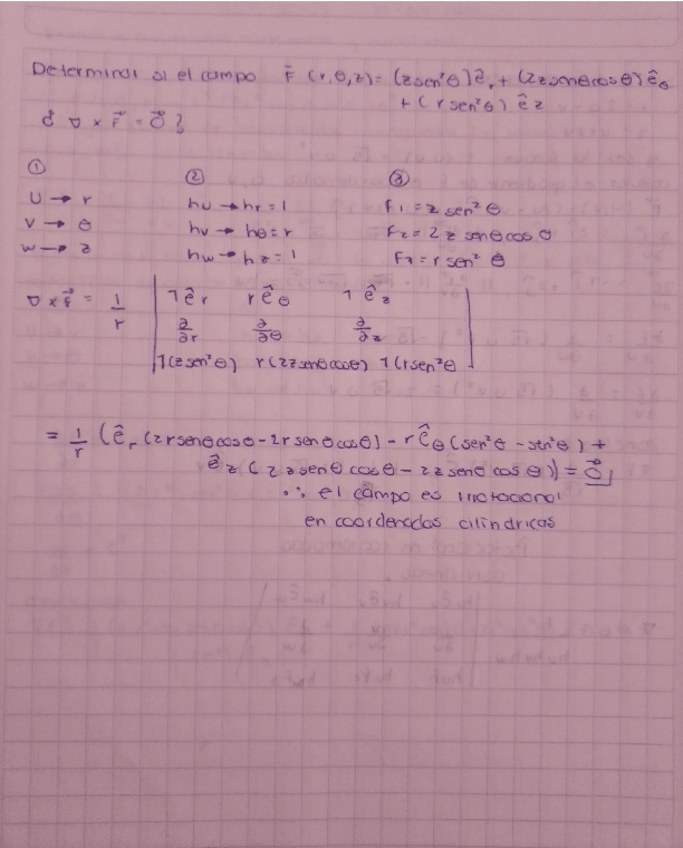 Determinar si el campo F̄ (r,θ,z)= (z sen²θ)ê_r + (2z senθ cosθ) ê_θ
+ (r sen²θ) ê z
¿ ∇ × F⃗ = O⃗ ?
① ② ③
U → r hu → hr = 1 f₁ = z sen² θ
V → θ hv → hθ = r F₂ = 2 z senθ cos θ
w → z hw → hz = 1 F₃ = r sen² θ
∇ × F⃗ = 1/r | 1 ê_r r ê_θ 1 ê_z |
∂/∂r ∂/∂θ ∂/∂z
1(z sen²θ) r(2z senθ cosθ) 1(r sen²θ
= 1/r (ê_r (2r senθ cosθ - 2r senθ cosθ) - r ê_θ (sen²θ - sen²θ) +
ê_z (2z senθ cosθ - 2z senθ cos θ)) = O⃗
∴ el campo es irrotacional
en coordenadas cilíndricas